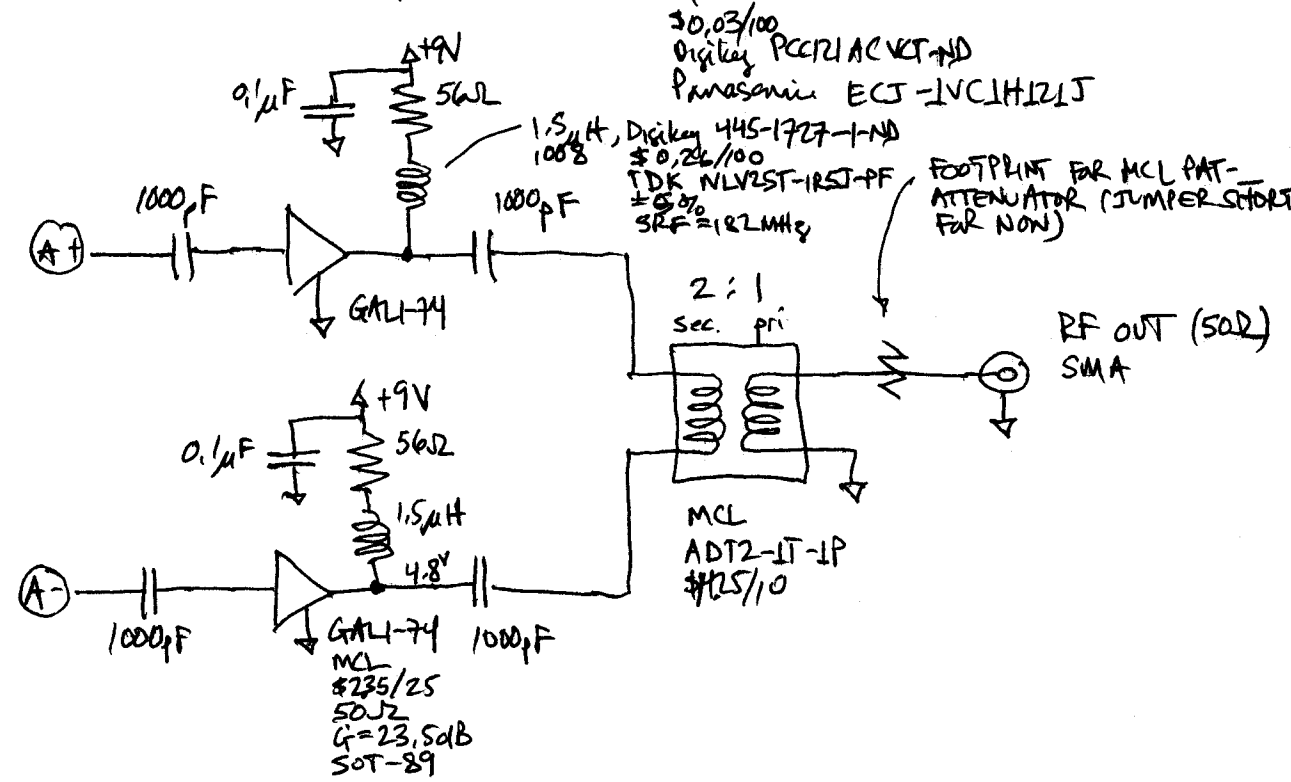 $0,03/100
Digikey PCC121ACVCT-ND
Panasonic ECJ-1VC1H121J
+9V
0,1µF
56Ω
1,5µH, Digikey 445-1727-1-ND
1008
$0,26/100
TDK NLV25T-1R5J-PF
±5%
SRF=182MHz
FOOTPRINT FOR MCL PAT-__
ATTENUATOR (JUMPER SHORT
FOR NON)
1000pF
1000pF
A+
GALI-74
2:1
sec. pri
RF OUT (50Ω)
SMA
+9V
0,1µF
56Ω
1,5µH
4.8V
MCL
ADT2-1T-1P
A-
1000pF
GALI-74
1000pF
MCL
$2.35/25
50Ω
G=23,5dB
SOT-89